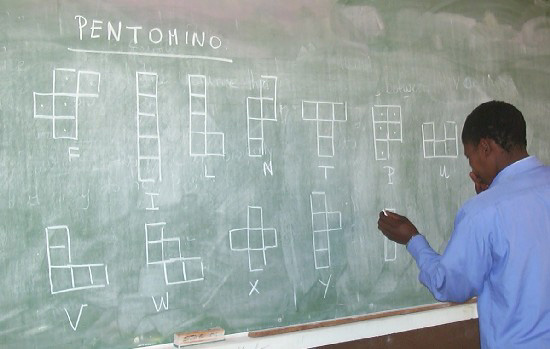 PENTOMINO
F I L N T P U
V W X Y